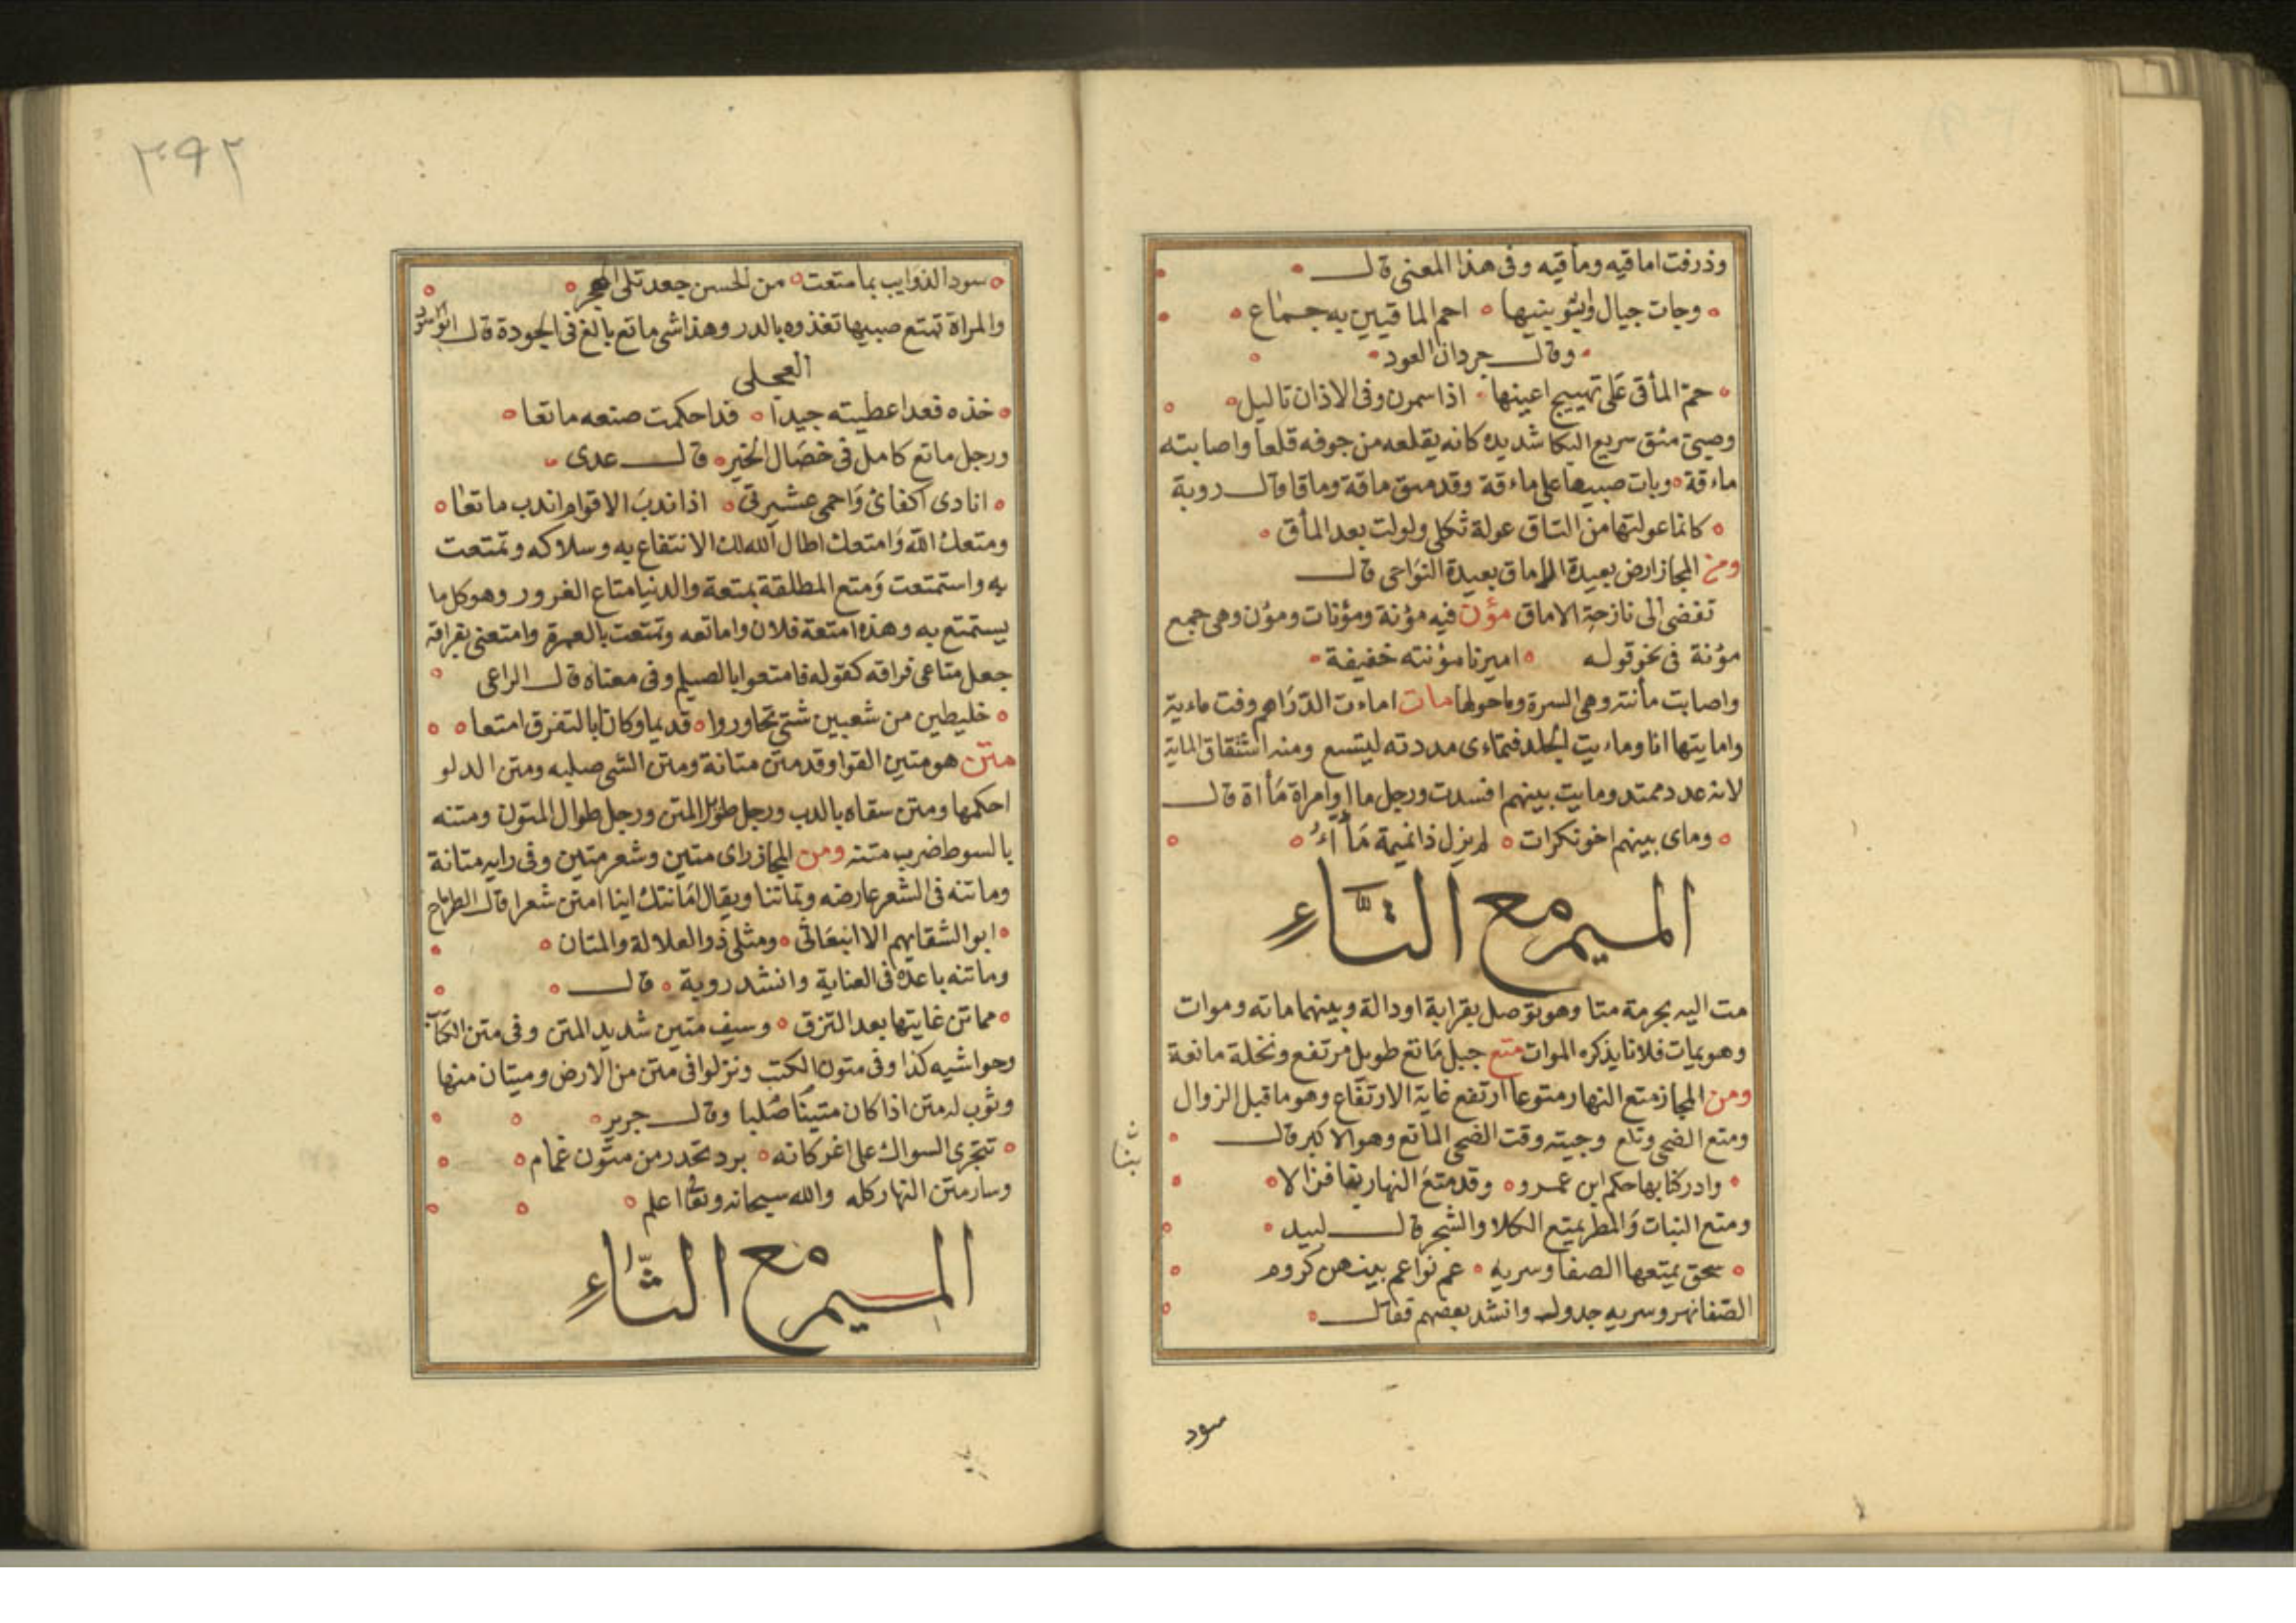 وذرفت اماقيه ومأقيه وفى هذا المعنى قال
وجات جيال وابنو بنيها احم الماقيين به جماع
وقال جردان العود
حم المأقى على تهييج اعينها اذا سمرن وفى الاذان تاليل
وصبى مئق سريع البكا شديده كانه يقلعه من جوفه قلعا واصابته
ماءقة وبات صبيها على ماءقة وقد مئق ماقة وماقا وقال روبة
كانما عولتها من التاق عولة ثكلى ولولت بعد المأق
ومن المجاز ارض بعيدة الاماق بعيدة النواحى قال
تفضى الى نازحة الاماق مؤن فيه مؤنة ومؤنات ومؤن وهى جمع
مؤنة فى نحو قوله اميرنا مؤنته خفيفة
واصابت مأنته وهى السرة وما حولها مات اماءت الدراهم وفت ماءية
وامايتها انا وماءيت الجلد فتماءى مددته ليتسع ومنه اشتقاق الماية
لانه عدد ممتد ومايت بينهم افسدت ورجل ماا وامراة مأاة قال
وماى بينهم اخو نكرات لم يزل ذا نميمة مأآء
الميم مع التاء
مت اليه بحرمة متا وهو توصل بقرابة او دالة وبينهما ماته وموات
وهو يمات فلانا يذكره الموات متع جبل ماتع طويل مرتفع ونخلة ماتعة
ومن المجاز متع النهار متوعا ارتفع غاية الارتفاع وهو ما قبل الزوال
ومتع الضحى وتلع وجيته وقت الضحى الماتع وهو الاكبر قال
وادركنا بها حكم ابن عمرو وقد متع النهار بنا فزالا
بنا
ومتع النبات والمطر يمتع الكلا والشجر قال لبيد
سحق يمتعها الصفا وسريه عم نواعم بينهن كروم
الصفا نهر وسريه جدوله وانشد بعضهم فقال
سود
٣٩٢
سود الذوايب بما متعت من الحسن جعد تلى المحجر
والمراة تمتع صبيها تغذوه بالدر وهذا شى ماتع بالغ فى الجودة قال ابو الاسود
العجلى
خذه فقد اعطيته جيدا قد احكمت صنعه ماتعا
ورجل ماتع كامل فى خصال الخير قال عدى
انادى اكفائى واحمى عشيرتى اذا ندب الاقوام اندب ماتعا
ومتعك الله وامتعك اطال الله لك الانتفاع به وسلاكه وتمتعت
به واستمتعت ومتع المطلقة بمتعة والدنيا متاع الغرور وهو كل ما
يستمتع به وهذه امتعة فلان واماتعه وتمتعت بالعمرة وامتعنى بفراقه
جعل متاعى فراقه كقوله فامتعوا بالصيلم وفى معناه قال الراعى
خليطين من شعبين شتى تجاوروا قديما وكانا بالتفرق امتعا
متن هو متين القوا وقد متن متانة ومتن الشى صلبه ومتن الدلو
احكمها ومتن سقاه بالدب ورجل طويل المتن ورجل طوال المتون ومتنه
بالسوط ضرب متنه ومن المجاز راى متين وشعر متين وفى رايه متانة
وماتنه فى الشعر عارضه وتماتنا ويقال اماتنك اينا امتن شعرا قال الطرماح
ابو الشقايهم الا انبعاثى ومثلى ذو العلالة والمتان
وماتنه باعده فى العناية وانشد روبة قال
مماتن غايتها بعد النزق وسيف متين شديد المتن وفى متن الكتاب
وحواشيه كذا وفى متون الكتب ونزلوا فى متن من الارض وميتان منها
وثوب له متن اذا كان متينا صلبا وقال جرير
تجرى السواك على اغر كانه برد تحدر من متون غمام
وسار متن النهار كله والله سبحانه وتعا اعلم
الميم مع الثاء